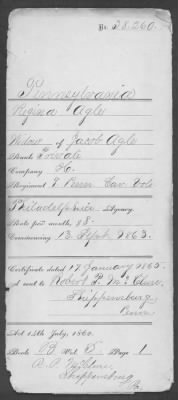 No. 28,260.
Pennsylvania
Regina Agle
Widow of Jacob Agle
Rank Private
Company H.
Regiment 9 Penn Cav Vols
Philadelphia Agency.
Rate per month, $8.
Commencing 13 Sept. 1863.
Certificate dated 17 January 1865.
and sent to Robert P. McClure,
Shippensburg
Penn
Act 14th July, 1862.
Book B Vol. 5 Page 1
R. P. McClure
Shippensburg
Pa